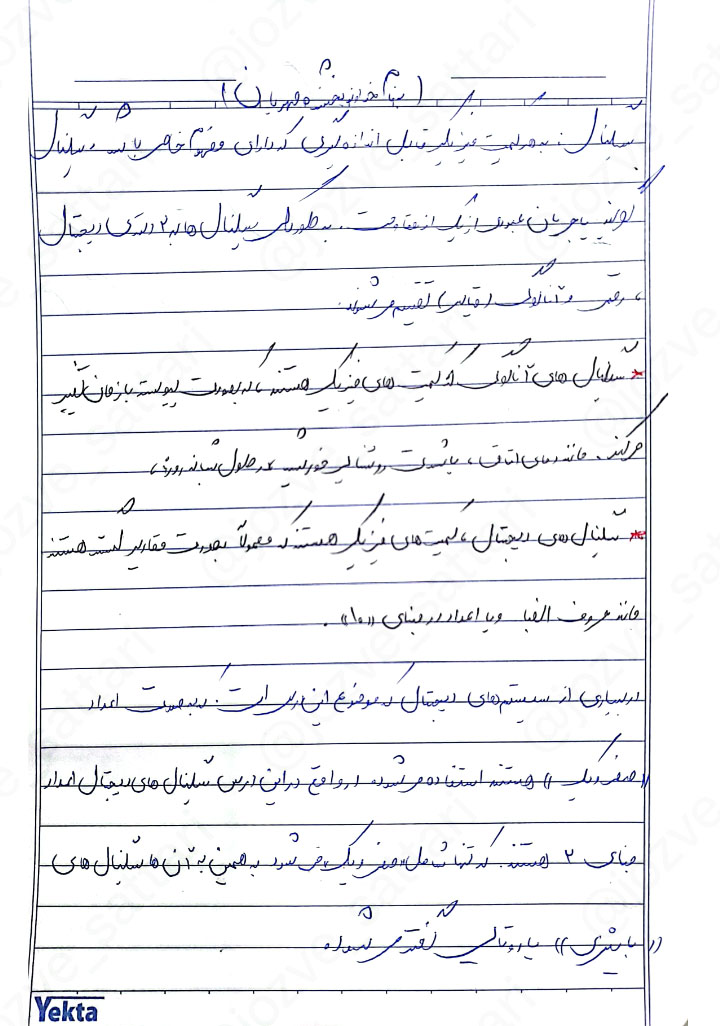 (بنام خداوند بخشنده مهربان)
سیگنال: به هر کمیت فیزیکی قابل اندازه گیری که دارای مفهوم خاص باشد، سیگنال
گویند یا جریان عبوری از یک از مقاومت. به طور کلی سیگنال ها به ۲ دسته ی دیجیتال
، رقمی و آنالوگ (قیاسی) تقسیم می شوند.
* سیگنال های آنالوگ، کمیت های فیزیکی هستند که بصورت پیوسته با زمان تغییر
می کنند. مانند دمای اتاق، یا شدت روشنایی خورشید در طول شبانه روز،
* سیگنال های دیجیتال، کمیت های فیزیکی هستند که معمولاً بصورت مقادیر گسسته هستند
مانند حروف الفبا و یا اعداد در مبنای «۱۰».
در بسیاری از سیستم های دیجیتال که موضوع این درس است. به صورت اعداد
«صفر و یک» هستند استفاده می شود. در واقع در این درس سیگنال های دیجیتال اعداد
مبنای ۲ هستند. که تنها شامل صفر و یک می شود به همین به آن ها سیگنال های
«باینری» یا دوتایی گفته می شود.
Yekta
@jozve_sattari